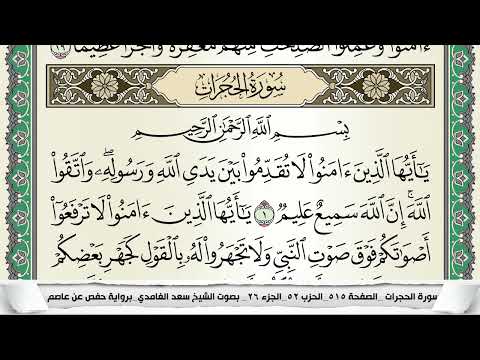 ءَامَنُوا۟ وَعَمِلُوا۟ ٱلصَّٰلِحَٰتِ مِنْهُم مَّغْفِرَةً وَأَجْرًا عَظِيمًۢا ٢٩
سُورَةُ الحُجُرَاتِ
بِسْمِ ٱللَّهِ ٱلرَّحْمَٰنِ ٱلرَّحِيمِ
يَٰٓأَيُّهَا ٱلَّذِينَ ءَامَنُوا۟ لَا تُقَدِّمُوا۟ بَيْنَ يَدَىِ ٱللَّهِ وَرَسُولِهِۦ ۖ وَٱتَّقُوا۟
ٱللَّهَ ۚ إِنَّ ٱللَّهَ سَمِيعٌ عَلِيمٌ ١ يَٰٓأَيُّهَا ٱلَّذِينَ ءَامَنُوا۟ لَا تَرْفَعُوٓا۟
أَصْوَٰتَكُمْ فَوْقَ صَوْتِ ٱلنَّبِىِّ وَلَا تَجْهَرُوا۟ لَهُۥ بِٱلْقَوْلِ كَجَهْرِ بَعْضِكُمْ
سورة الحجرات _الصفحة ٥١٥_ الحزب ٥٢_ الجزء ٢٦_ بصوت الشيخ سعد الغامدي برواية حفص عن عاصم